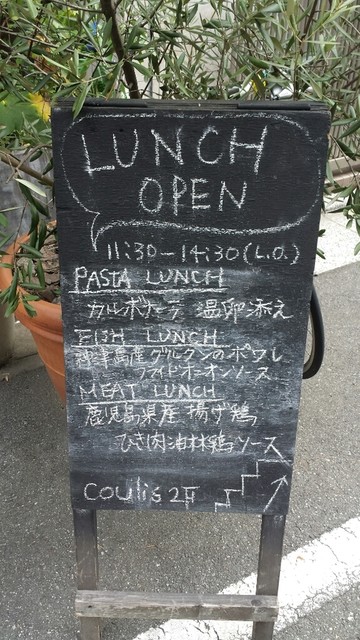 LUNCH
OPEN
11:30-14:30(L.O.)
PASTA LUNCH
カルボナーラ 温卵添え
FISH LUNCH
産グルクンのポワレ
フライドオニオンソース
MEAT LUNCH
鹿児島県産 揚げ鶏
ひき肉油林鶏ソース
coulis 2F